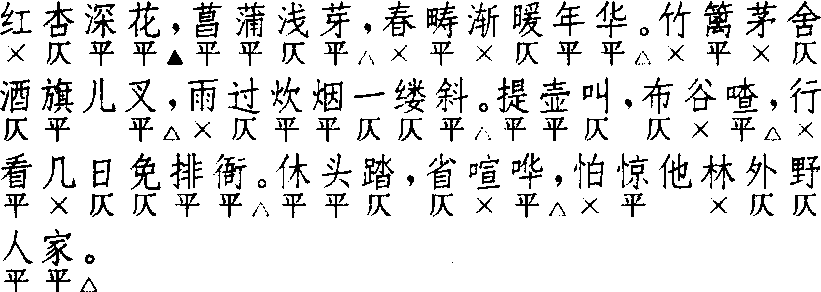 红杏深花,菖蒲浅芽,春畴渐暖年华。竹篱茅舍
× 仄 平 平 ▲ 平 平 仄 平 △ × 平 × 仄 平 平 △ × 平 × 仄
酒旗儿叉,雨过炊烟一缕斜。提壶叫,布谷喳,行
仄 平 平 △ × 仄 平 平 仄 仄 平 △ 平 平 仄 仄 × 平 △ ×
看几日免排衙。休头踏,省喧哗,怕惊他林外野
平 × 仄 仄 平 平 △ 平 平 仄 仄 × 平 △ × 平 × 仄 仄
人家。
平 平 △